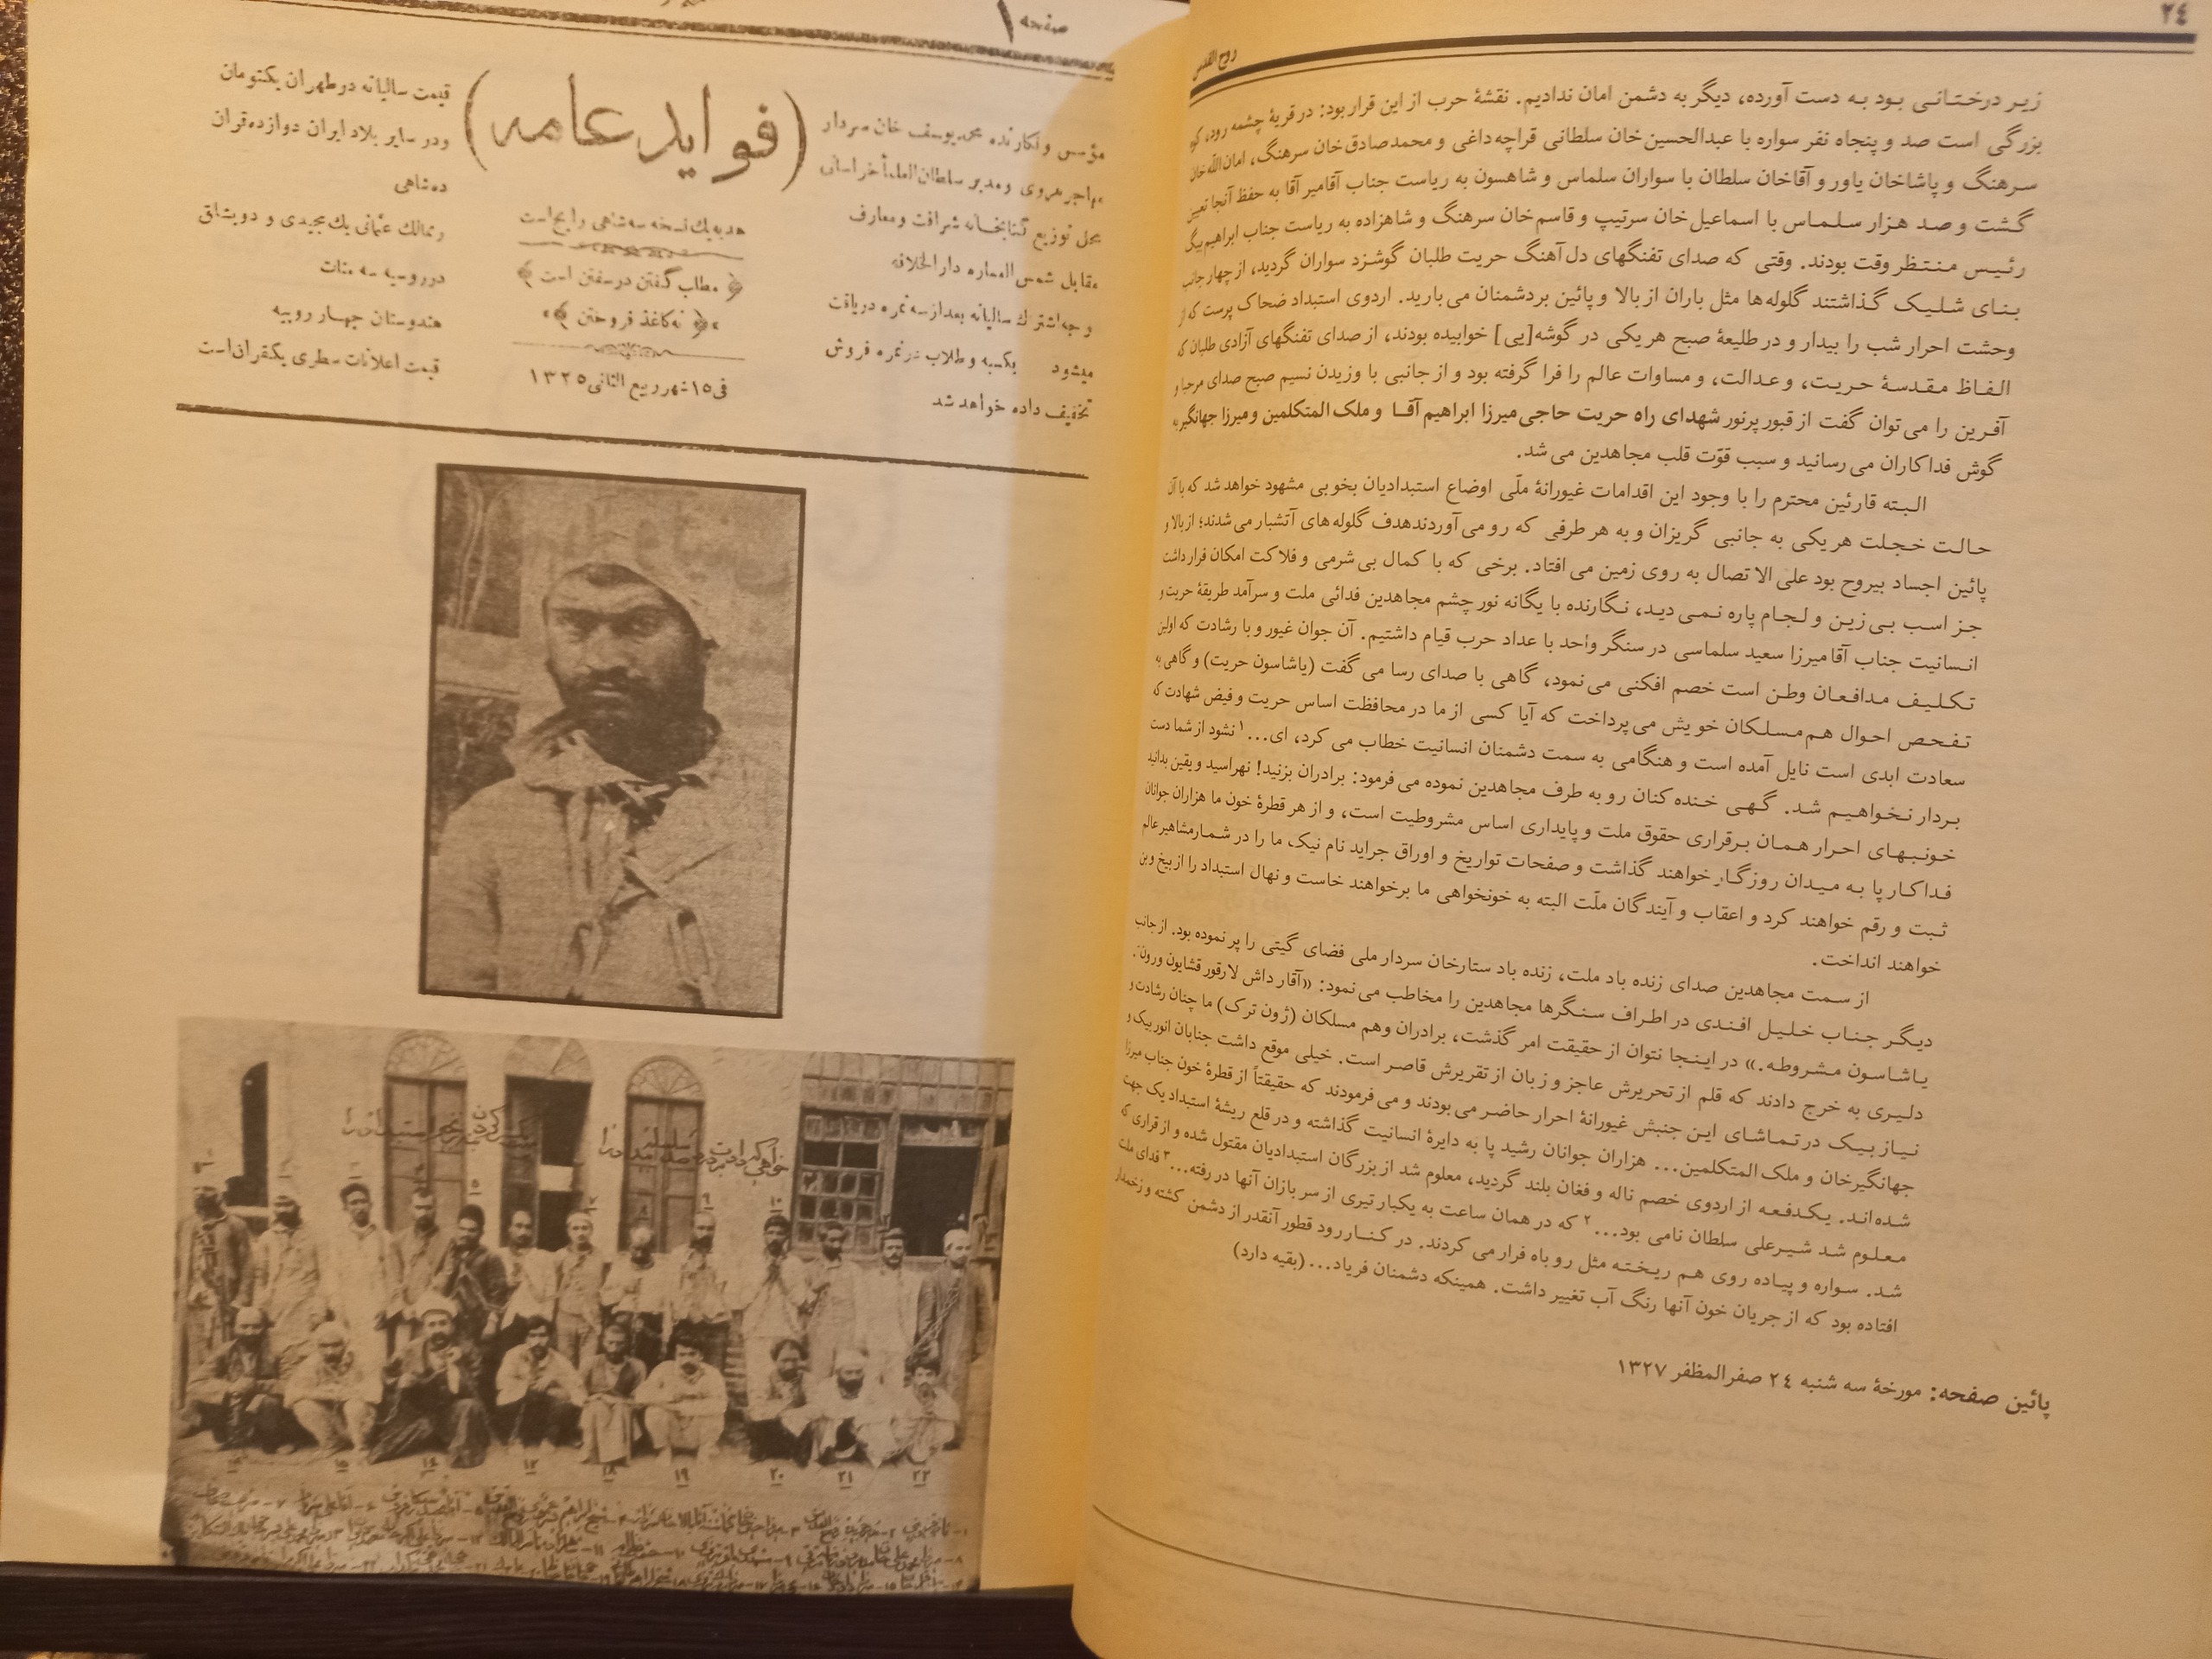 ۲٤
روح القدس
زیر درختانی بود به دست آورده، دیگر به دشمن امان ندادیم. نقشهٔ حرب از این قرار بود: در قریهٔ چشمه رود، کوه
بزرگی است صد و پنجاه نفر سواره با عبدالحسین‌خان سلطانی قراچه‌داغی و محمد صادق خان سرهنگ، امان‌اللّه خان
سرهنگ و پاشاخان یاور و آقاخان سلطان با سواران سلماس و شاهسون به ریاست جناب آقامیر آقا به حفظ آنجا تعین
گشت و صد هزار سلماس با اسماعیل خان سرتیپ و قاسم خان سرهنگ و شاهزاده به ریاست جناب ابراهیم بیگ
رئیس منتظر وقت بودند. وقتی که صدای تفنگهای دل آهنگ حریت طلبان گوشزد سواران گردید، از چهار جانب
بنای شلیک گذاشتند گلوله‌ها مثل باران از بالا و پائین بردشمنان می بارید. اردوی استبداد ضحاک پرست که از
وحشت احرار شب را بیدار و در طلیعهٔ صبح هر یکی در گوشه[یی] خوابیده بودند، از صدای تفنگهای آزادی طلبان که
الفاظ مقدسهٔ حریت، و عدالت، و مساوات عالم را فرا گرفته بود و از جانبی با وزیدن نسیم صبح صدای مرحبا و
آفرین را می توان گفت از قبور پرنور شهدای راه حریت حاجی میرزا ابراهیم آقا و ملک المتکلمین و میرزا جهانگیر به
گوش فداکاران می رسانید و سبب قوّت قلب مجاهدین می شد.
البته قارئین محترم را با وجود این اقدامات غیورانهٔ ملّی اوضاع استبدادیان بخوبی مشهود خواهد شد که با آن
حالت خجلت هر یکی به جانبی گریزان و به هر طرفی که رو می آوردندهدف گلوله های آتشبار می شدند؛ از بالا و
پائین اجساد بیروح بود علی الا تصال به روی زمین می افتاد. برخی که با کمال بی شرمی و فلاکت امکان فرار داشت
جز اسب بی زین و لجام پاره نمی دید، نگارنده با یگانه نور چشم مجاهدین فدائی ملت و سرآمد طریقهٔ حریت و
انسانیت جناب آقا میرزا سعید سلماسی در سنگر واحد با عداد حرب قیام داشتیم. آن جوان غیور و با رشادت که اولین
تکلیف مدافعان وطن است خصم افکنی می نمود، گاهی با صدای رسا می گفت (یاشاسون حریت) و گاهی به
تفحص احوال هم مسلکان خویش می پرداخت که آیا کسی از ما در محافظت اساس حریت و فیض شهادت که
سعادت ابدی است نایل آمده است و هنگامی به سمت دشمنان انسانیت خطاب می کرد، ای...۱ نشود از شما دست
بردار نخواهیم شد. گهی خنده کنان رو به طرف مجاهدین نموده می فرمود: برادران بزنید! نهراسید و یقین بدانید
خونبهای احرار همان برقراری حقوق ملت و پایداری اساس مشروطیت است، و از هر قطرهٔ خون ما هزاران جوانان
فداکار پا به میدان روزگار خواهند گذاشت و صفحات تواریخ و اوراق جراید نام نیک ما را در شمار مشاهیر عالم
ثبت و رقم خواهند کرد و اعقاب و آیندگان ملّت البته به خونخواهی ما برخواهند خاست و نهال استبداد را از بیخ و بن
خواهند انداخت.
از سمت مجاهدین صدای زنده باد ملت، زنده باد ستارخان سردار ملی فضای گیتی را پر نموده بود. از جانب
دیگر جناب خلیل افندی در اطراف سنگرها مجاهدین را مخاطب می نمود: «آقار داش لارقور قشایون ورون.
یاشاسون مشروطه.» در اینجا نتوان از حقیقت امر گذشت، برادران وهم مسلکان (ژون ترک) ما چنان رشادت و
دلیری به خرج دادند که قلم از تحریرش عاجز و زبان از تقریرش قاصر است. خیلی موقع داشت جنابان انور بیک و
نیاز بیک در تماشای این جنبش غیورانهٔ احرار حاضر می بودند و می فرمودند که حقیقتاً از قطرهٔ خون جناب میرزا
جهانگیرخان و ملک المتکلمین... هزاران جوانان رشید پا به دایرهٔ انسانیت گذاشته و در قلع ریشهٔ استبداد یک جهت
شده‌اند. یکدفعه از اردوی خصم ناله و فغان بلند گردید، معلوم شد از بزرگان استبدادیان مقتول شده و از قراری که
معلوم شد شیرعلی سلطان نامی بود...۲ که در همان ساعت به یکبار تیری از سر بازان آنها در رفته...۳ فدای ملت
شد. سواره و پیاده روی هم ریخته مثل رو باه فرار می کردند. در کنار رود قطور آنقدر از دشمن کشته و زخمدار
افتاده بود که از جریان خون آنها رنگ آب تغییر داشت. همینکه دشمنان فریاد... (بقیه دارد)
پائین صفحه: مورخهٔ سه شنبه ۲٤ صفرالمظفر ۱۳۲۷
صفحه ۱
(فواید عامه)
مؤسس و نگارنده محمد یوسف خان سردار
مهاجر هروی و مدیر سلطان العلمأ خراسانی
محل توزیع کتابخانه شرافت و معارف
مقابل شمس العماره دار الخلافه
وجه اشتراك سالیانه بعد از سه نمره دریافت
میشود بکسبه و طلاب در نمره فروش
تخفیف داده خواهد شد
هدیه یك نسخه سه شاهی رایج است
مطلب گفتن در سفتن است
نه کاغذ فروختن
فی ۱۵ شهر ربیع الثانی ۱۳۲۵
قیمت سالیانه در طهران یکتومان
و در سایر بلاد ایران دوازده قران
ده شاهی
و ممالك عثمانی یك مجیدی و دو بشلق
در روسیه سه منات
هندوستان چهار روپیه
قیمت اعلانات سطری یکقران است
۱۹
۲۰
۲۱
۲۲